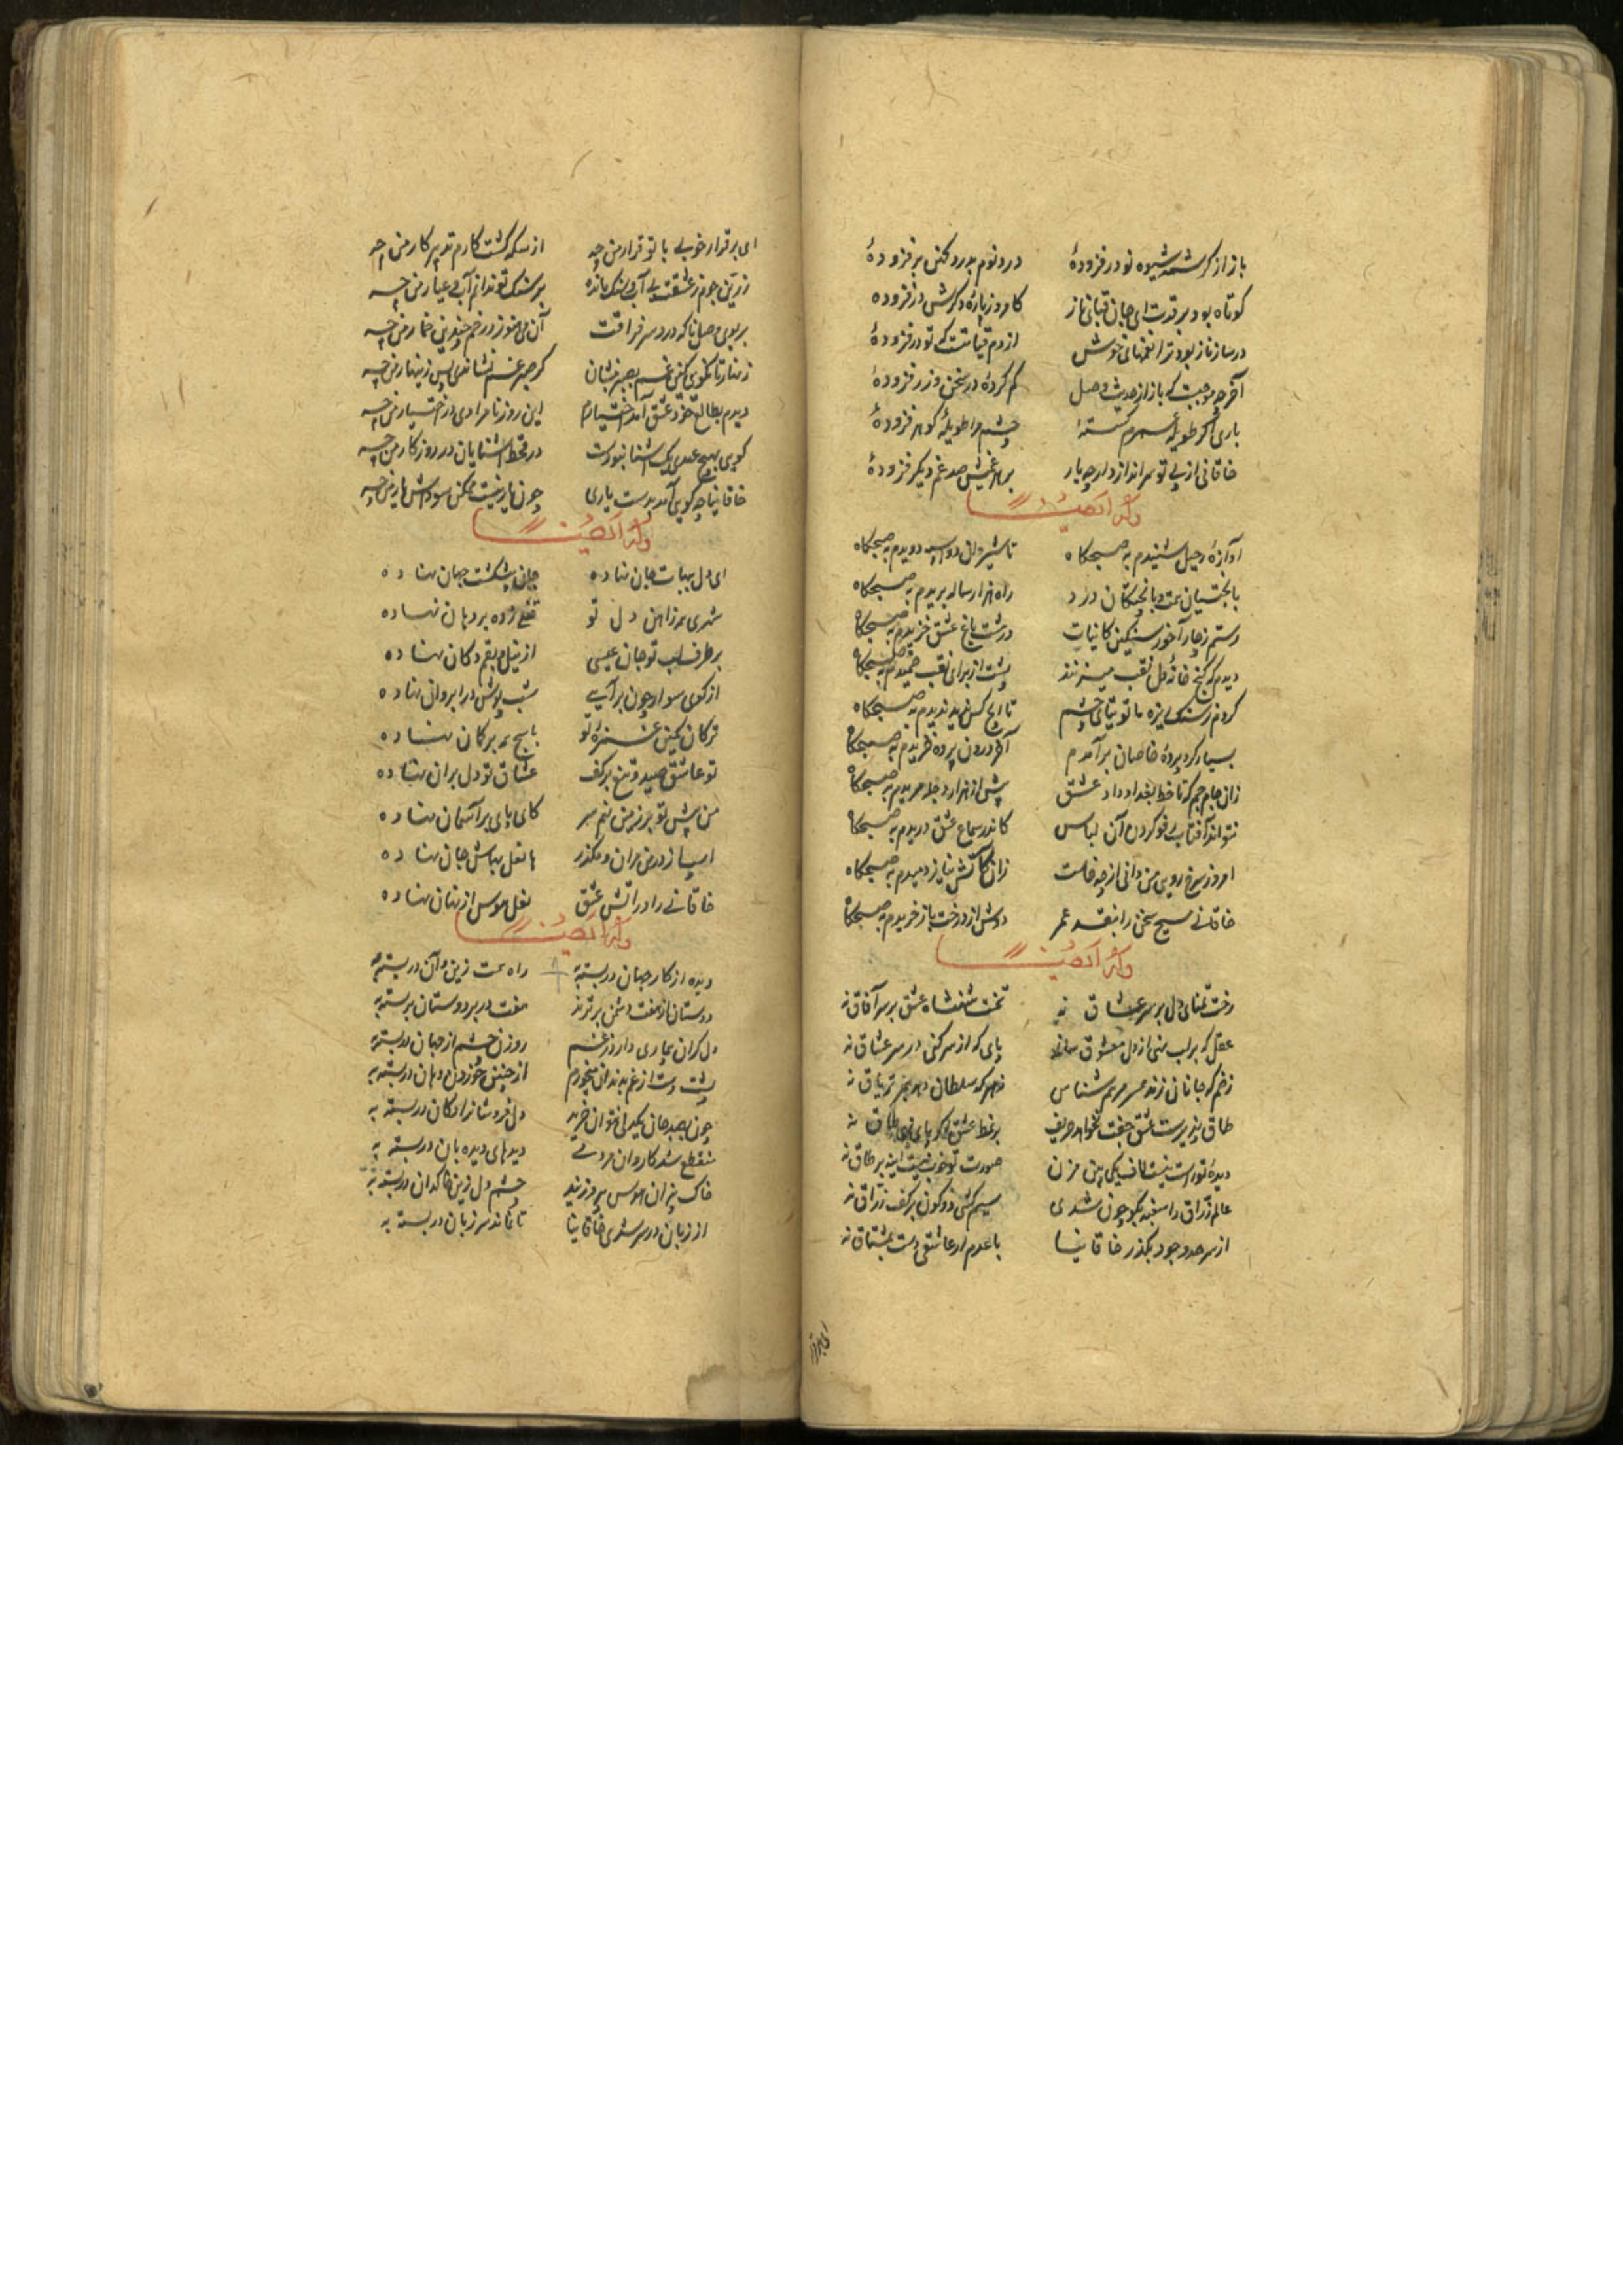 باز از کرشمه شیوه نو در فزودهٔ در دنوم بدرد کهن بر فزودهٔ
کوتاه بود بر قدت ای جان قبای ناز کامروز پارهٔ دگرش در فزوده
در ساز ناز بود ترا نغمهای خوش از دم قیامتست که تو در فزودهٔ
آخر چه موجبت که باز از حدیث وصل کم کردهٔ در سخن و زر فزودهٔ
باری اگر طویلهٔ عمرم گسستهٔ چشم مرا طویلهٔ گوهر فزودهٔ
خاقانی از پی تو سر اندازد ار چه یار بر هر غمیش صد غم دیگر فزودهٔ
وله ایضا
آوازهٔ رحیل شنیدم به صبحگاه تا شب روان دو اسبه دویدم به صبحگاه
با بختیان راه هزار ساله بریدم به صبحگاه
رستم ز چار آخور سنگین کاینات در هشت باغ عشق خزیدم به صبحگاه
دیدم که گنج خانهٔ دل نقب میزنند پشت از برای نقب خمیدم به صبحگاه
کردم ز سنگ ریزه ره توتیای چشم تا آنچ کس ندید بدیدم به صبحگاه
بسیار گرد پردهٔ خاصان برآمدم آخر درون پرده خزیدم به صبحگاه
زان جام جم که تا خط بغداد داد عشق پیش از هزار دجله مزیدم به صبحگاه
نتواند آفتاب رفو کردن آن لباس کاندر سماع عشق دریدم به صبحگاه
امروز سرخ رویی من دانی از چه خاست زان کآتش نیاز دمیدم به صبحگاه
خاقانی مسیح سخن را بنقد عمر دوش از درخت باز خریدم به صبحگاه
وله ایضا
رخت تمنای دل بر سر عشاق نه تخت شهنشاه عشق بر سر آفاق نه
عقل که بر لب نهی از دل معشوق پای که از سر کنی در سر عشاق نه
زخم که جانان زند همسر مرهم شناس زهر که سلطان دهد همبر تریاق نه
طاق پذیرست عشق جفت نخواهد حریف بر نمط عشق اگر پای نهی طاق نه
دیدهٔ تو راست نیست لاف یکی بین مزن صورت تو خوب نیست اینه بر طاق نه
عالم زراق را سغبه یکو چون شدی سیم کشی دو کون بر کف زراق نه
از سر حد وجود بگذر خاقانیا با عدم ار عاشقی دست بشتاق نه
ای برقرار
ای برقرار خوبی با تو قرار من چه از سکه گشت کارم تدبیر کار من چه
زرین چو جوم ز عشقت بی آب و سنگ مانده بر سنگ تو ندانم آب و عیار من چه
بر بوی وصل ناکه درد سر فراقت آن می هنوز در خم چندین خمار من چه
زنهار تا نگویی کین غم بصبر بنشان گر صبر غم نشاندی پس زینهار من چه
دیدم بطالع خود عشق آمد اختیارم این روز نامرادی در اختیار من چه
گویی بهیچ عهدی یک آشنا نبودت در قحط آشنایان در روزگار من چه
خاقانیا چه گویی آمد بدست یاری چون یار نیست ممکن سودای یار من چه
وله ایضا
ای دل ببهات جان نهاده جان پیشکشت جهان نهاده
شهری همه زاهن دل تو قفلی زده بر دهان نهاده
بر طرف لب تو جان عیسی از نیل و بقم دکان نهاده
از کوی سوار چون برآیی شب پوش در ابروان نهاده
ترکان کمین غمزهٔ تو پاسنج همه بر کمان نهاده
تو عاشق صید و تیغ بر کف عشاق تو دل بر ان نهاده
من پیش تو بر زمین نهم سر کای پای بر آسمان نهاده
اسب از در من مران و مگذر ها نعل بهاش جان نهاده
خاقانی را در اتش عشق نعل هوس از نهان نهاده
وله ایضا
دیده از کار جهان در بسته به راه همت زین و آن در بسته به
دوستان از هفت دشمن برترند هفت در بر دوستان بر بسته به
دل گران بیماری دارد ز غم روزن چشم از جهان در بسته به
پشت دست از غم بدندان میخورم از چنین خوردن دهان در بسته به
چون بصد جان یکدلی نتوان خرید دل فروشان را دکان در بسته به
منقطع شد کاروان مردمی دیدهای دیده بان در بسته به
خاک پیزان هوس بی روزیند چشم دل زین خاکدان در بسته به
از زبان در سر شدی خاقانیا تا نماند سر زبان در بسته به